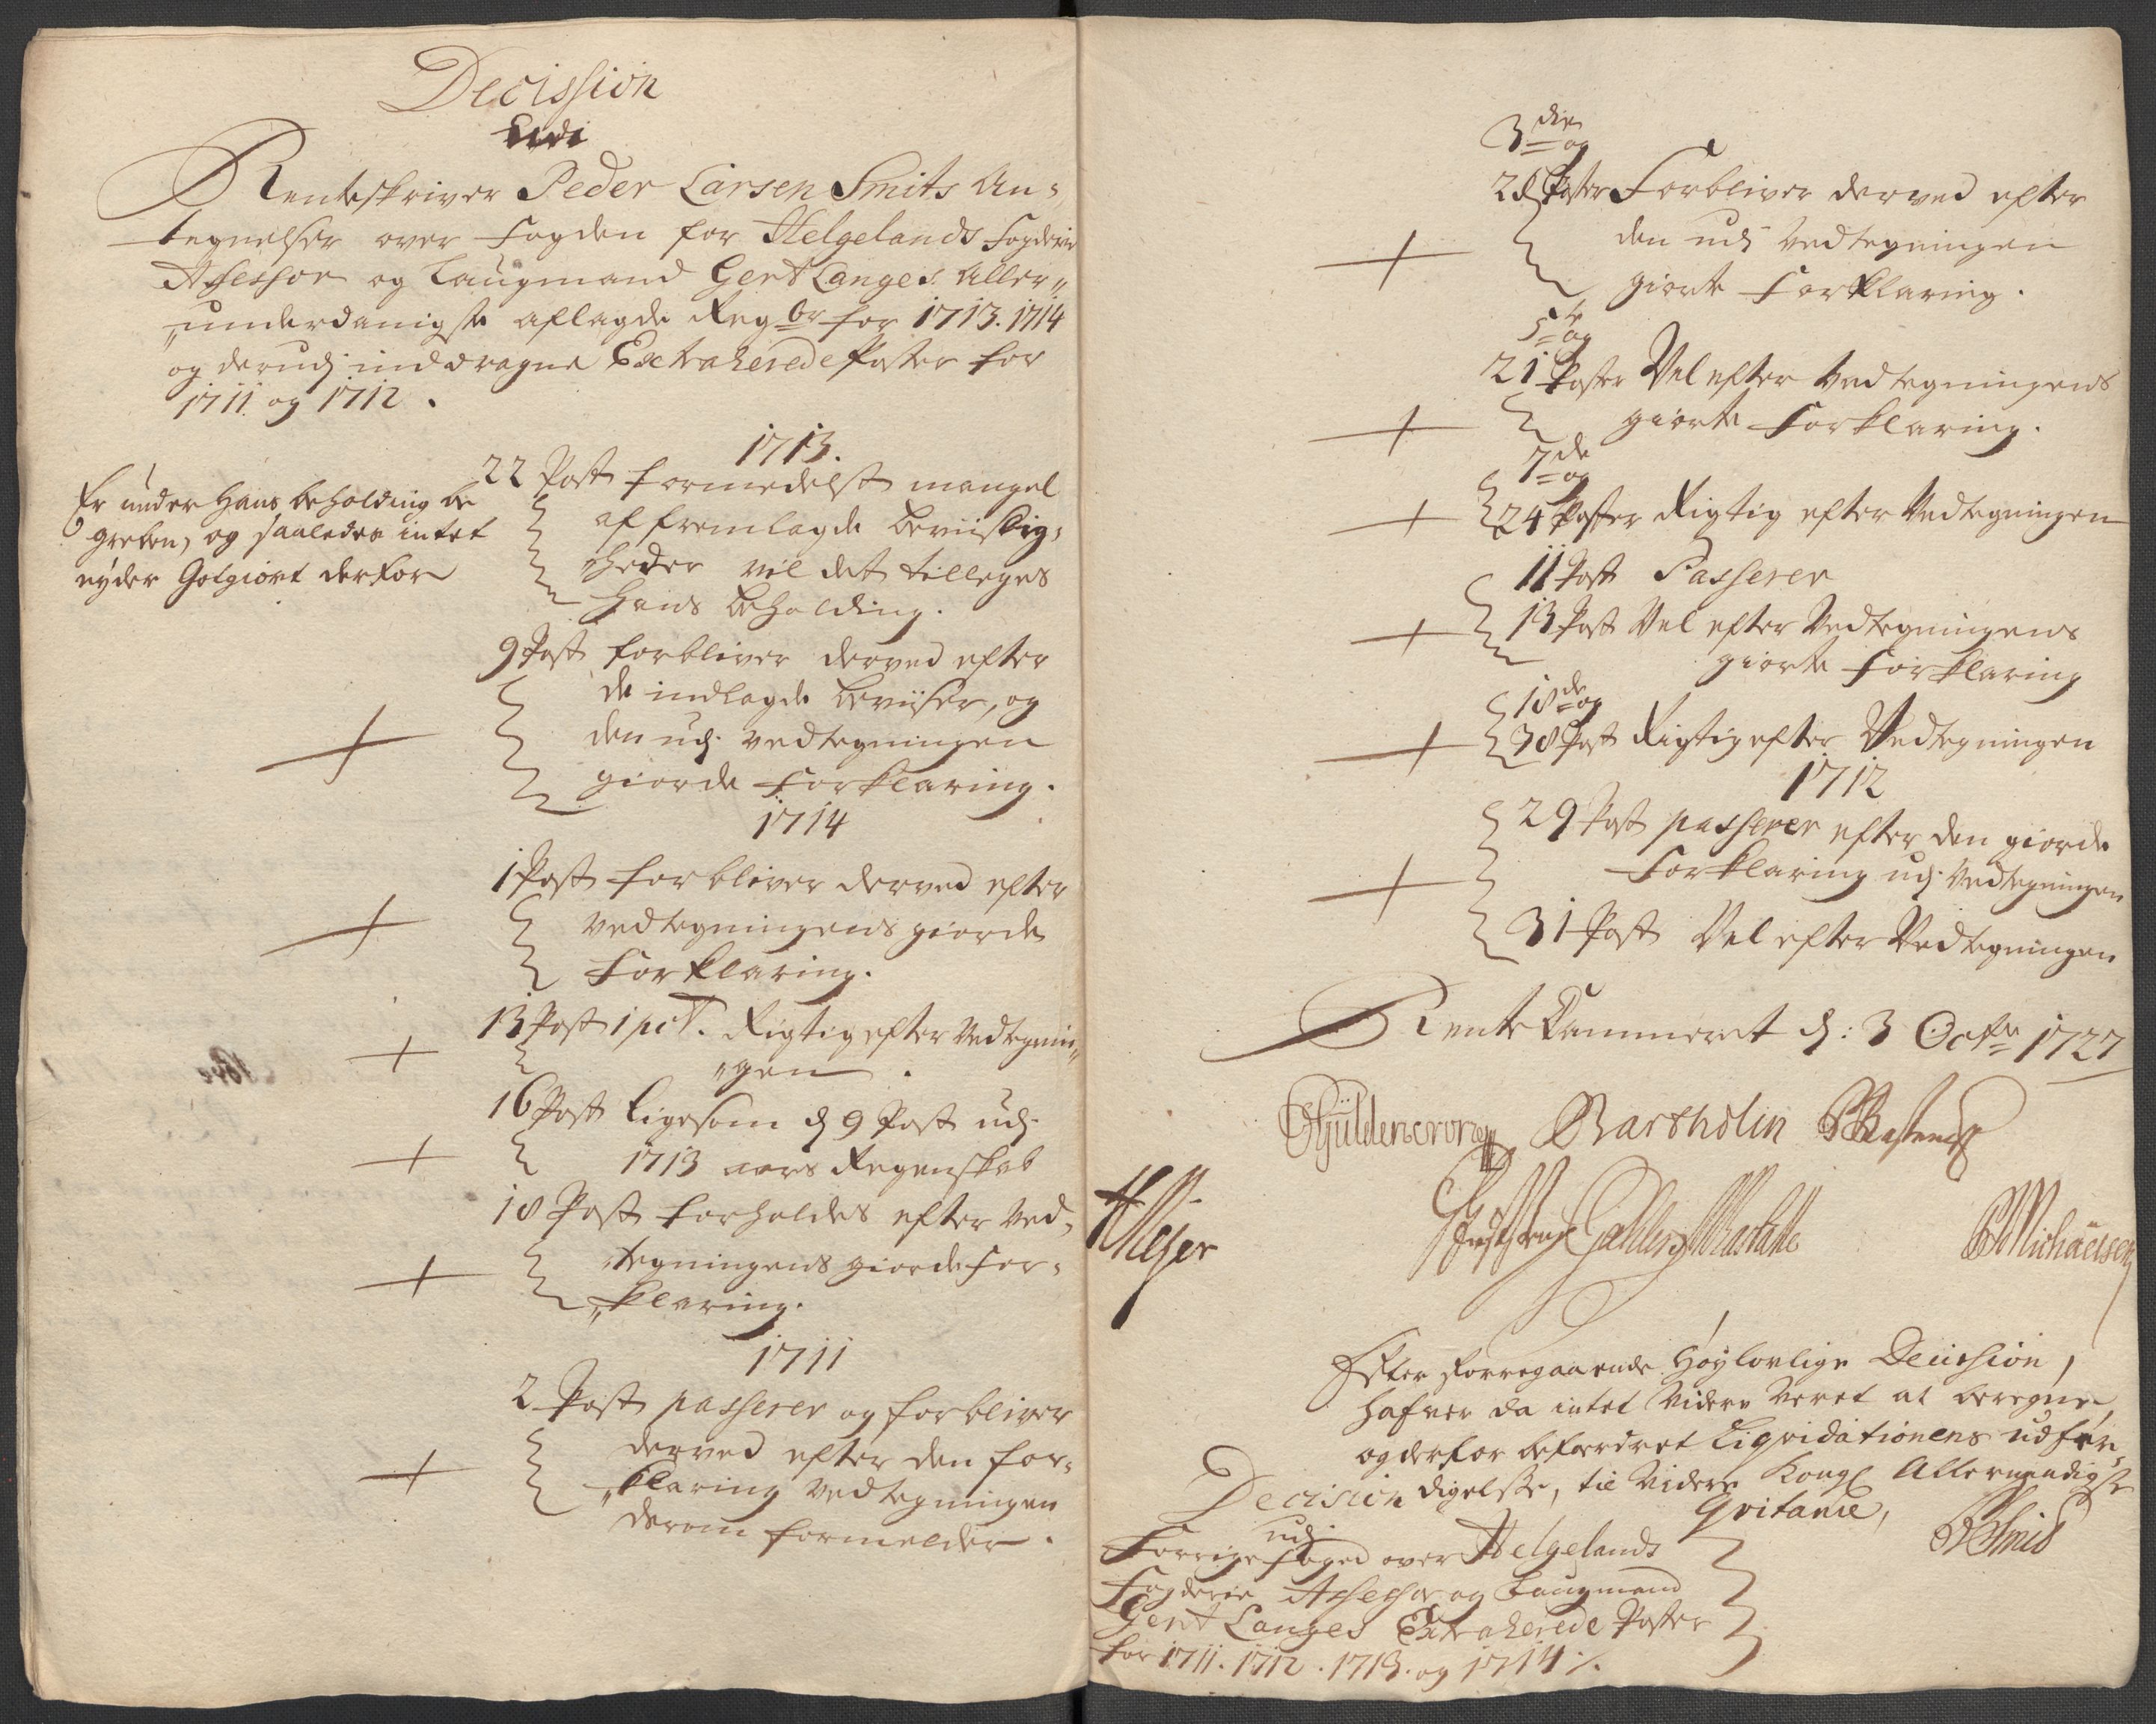 Decission
Udi
Renteskriver Peder Larsen Smits An-
tegnelser over Fogden for Helgelands Fogderie
Assessor og Laugmand Gert Langes Aller„
„underdanigste aflagde Regbr for 1713. 1714
og derudj inddragne Extraherede Poster for
1711 og 1712.
1713.
22 Post formedelst mangel
af fremlagde beviislig-
„heder vil det tillegges
hans beholding.
Er under Hans beholding be
greben, og saaledes intet
eyder Gotgiort derfor
9 Post forbliver derved efter
de indlagde beviiser, og
den udj vedtegningen
giorde Forklaring.
1714
1 Post forbliver derved efter
Vedtegningens giorde
Forklaring.
13 Post 1 pct. Rigtig efter Vedtegnin„
„gen.
16 Post Ligesom d 9 Post udj
1713 aars Regenskab
18 Post forholdes efter Ved-
tegningens giorde For-
„klaring.
1711
2 Post passerer og forbliver
derved efter den for-
„klaring Vedtegningen
derom formelder.
3die og
Poster Forbliver derved efter
den udj Vedtegningen
giorte Forklaring.
5te og
21 Poster Vel efter Vedtegningens
giorte Forklaring.
7de og
24 Poster Rigtig efter Vedtegningen
11 Post Passerer
13 Post Vel efter Vedtegningens
giorte Forklaring
18de og
38 Post Rigtig efter Vedtegningen
1712
29 Post passerer efter den giorde
Forklaring udj Vedtegningen
31 Post Vel efter Vedtegningen
Rente Kammeret d: 3 Octbr 1727
Gyldencrone Bartholin
Meyer Michaelsen
Efter forregaaende Høylovlige Decission,
hafver da intet videre veret at beregne,
og derfor befordret Liqvidationens udfær-
digelse, til videre Kongl Allernaadigste
Qvitance,
PLSmid
Decision
udj
Forrige foged over Helgelands
Fogderie Assessor og Laugmand
Gert Langes Extraherede Poster
for 1711. 1712. 1713. og 1714 ./.